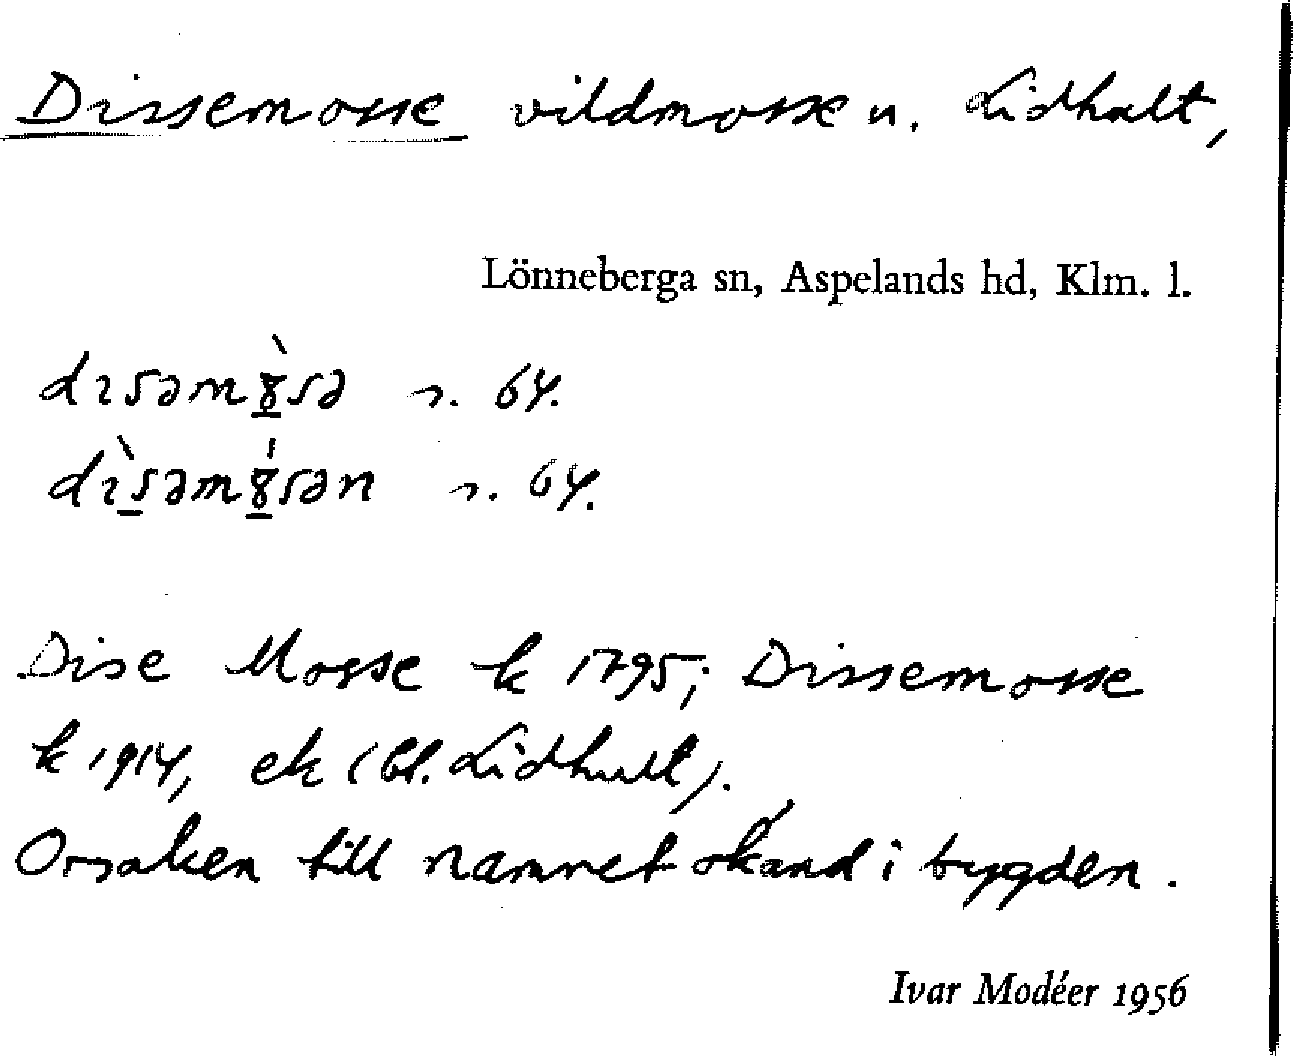 Dissemosse vildmosse u. Lidhult,
Lönneberga sn, Aspelands hd, Klm. l.
dɪsəmɤ̀sə s. 64.
dɪ̀səmɤ́sən s. 64.
Dise Mosse k 1795; Dissemosse
k 1914, ek (bl. Lidhult).
Orsaken till namnet okänd i bygden.
Ivar Modéer 1956